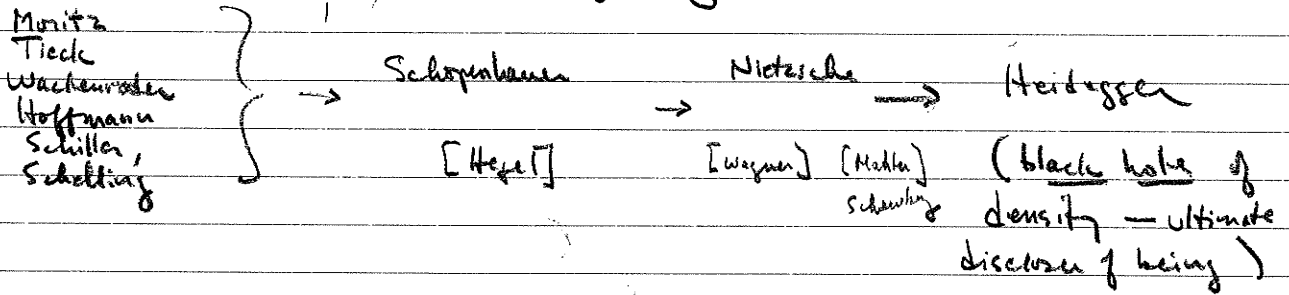 Moritz
Tieck
Wackenroder
Hoffmann
Schiller,
Schelling
→ Schopenhauer → Nietzsche → Heidegger
[Hegel] [Wagner] [Mahler] (black hole of
density — ultimate
discloser of being)